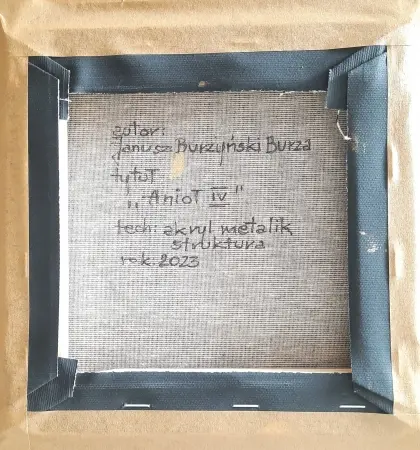 autor:
Janusz Burzyński Burza
tytuł
„Anioł IV"
tech: akryl metalik
struktura
rok: 2023